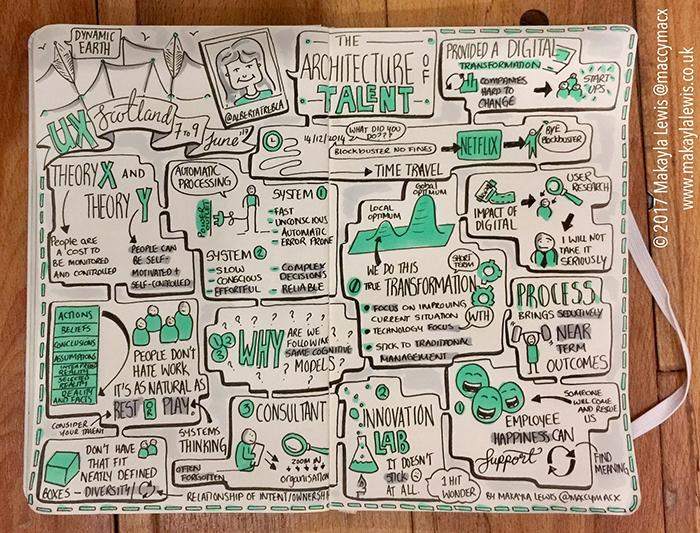 DYNAMIC
EARTH
UX
Scotland
7 TO 9
June '17
@ALBERTATREBLA
THE
ARCHITECTURE
OF
TALENT
PROVIDED A DIGITAL
TRANSFORMATION
COMPANIES
HARD TO
CHANGE
START
UPS
14/12/2014
WHAT DID YOU
DO???
BLOCKBUSTER NO FINES
NETFLIX
BYE
BLOCKBUSTER
TIME TRAVEL
THEORY X AND
THEORY Y
PEOPLE ARE
A COST TO
BE MONITORED
AND CONTROLLED
PEOPLE CAN
BE SELF-
MOTIVATED +
SELF-CONTROLLED
AUTOMATIC
PROCESSING
SYSTEM 1
- FAST
- UNCONSCIOUS
- AUTOMATIC
- ERROR PRONE
SYSTEM 2
- SLOW
- CONSCIOUS
- EFFORTFUL
- COMPLEX
DECISIONS
- RELIABLE
LOCAL
OPTIMUM
GLOBAL
OPTIMUM
WE DO THIS
SHORT
TERM
TRUE TRANSFORMATION
FOCUS ON IMPROVING
CURRENT SITUATION
TECHNOLOGY FOCUS
WITH
STICK TO TRADITIONAL
MANAGEMENT
IMPACT OF
DIGITAL
USER
RESEARCH
I WILL NOT
TAKE IT
SERIOUSLY
PROCESS
BRINGS SEDUCTIVELY
NEAR
TERM
OUTCOMES
ACTIONS
BELIEFS
CONCLUSIONS
ASSUMPTIONS
REALITY
SELECTED
REALITY
REALITY
AND FACTS
CONSIDER
YOUR TALENT
PEOPLE DON'T
HATE WORK
IT'S AS NATURAL AS
REST & PLAY
1
2
3
WHY
ARE WE
FOLLOWING
SAME COGNITIVE
MODELS?
DON'T HAVE
THAT FIT
NEATLY DEFINED
BOXES - DIVERSITY/
SYSTEMS
THINKING
OFTEN
FORGOTTEN
3 CONSULTANT
ZOOM IN
organisation
RELATIONSHIP OF INTENT/OWNERSHIP
2
INNOVATION
LAB
IT DOESN'T
STICK
AT ALL.
1 HIT
WONDER
1
EMPLOYEE
HAPPINESS CAN
Support
SOMEONE
WILL COME
AND RESCUE
US
FIND
MEANING
BY MAKAYLA LEWIS @MACCYMACX
© 2017 Makayla Lewis @maccymacx
www.makaylalewis.co.uk